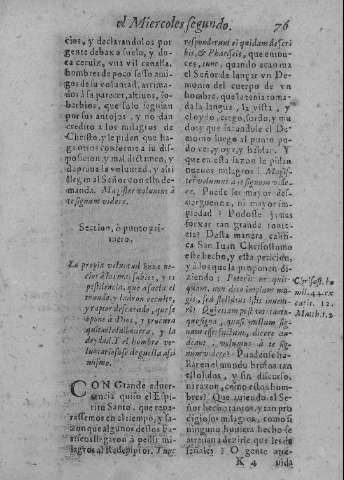 el Miercoles segundo. 76
cios, y declarandolos por
gente de baxo suelo, y do-
cacervis, vna vil canalla,
hombres de poco seso ami-
gos de su voluntad, arrima-
dos a su parecer, altiuos, so-
berbios, que solo seguian
por sus antojos, y no dan
credito a los milagros de
Christo, y le piden que ha-
ga otros conforme a su dis-
posicion, y mal dictamen, y
deprauada voluntad, y assi
llegan al Señor con esta de-
manda. Magister volumus à
te signum videre.
Section, ò punto pri-
mero.
La propia voluntad haze ne-
cios à los mas sabios, y es
pestilencia, que assuela el
mundo, y ladron oculto,
y rapaz descarado, que se
opone à Dios, y procura
quitarle la honra, y la
deydad. El hombre vo-
luntarioso se deguella assi
mismo.
CON Grande aduer-
tencia quiso el Espi-
ritu Santo, que repa-
rassemos en el tiempo, y sa-
zon que algunos destos ba-
rriscos llegaron à pedir mi-
lagros al Redemptor. Tunc
responderunt ei quidam de scri-
bis, & Phariseis, que enton-
ces, tunc, quando acaaua
el Señor de lançar vn De-
monio del cuerpo de vn
hombre, que le tenia toma-
da la lengua, la vista, y
el oydo, ciego, sordo, y mu-
do; y que sacandole el De-
monio luego al punto pu-
do ver, y oyr, y hablar. Y
que en esta sazon le pidan
nueuos milagros! Magis-
ter volumus à te signum vide-
re. Puede ser mayor des-
verguença, ni mayor im-
piedad? Pudose jamas
forxar tan grande tonte-
ria? Desta manera califi-
ca San Iuan Chrisostomo
este hecho, y esta peticion,
y a los que la proponen di-
ziendo: Poterit ne quis-
quam, non dico impium ma-
gis, sed stolidius istis inueni-
ri? Qui etiam post tot tanta-
que signa, quasi nullum sig-
num esset factum, dicere ca-
debant: volumus à te sig-
num videre? Puedense ha-
llar en el mundo brutos tan
estolidos, y sin discurso,
ni razon, como estos hom-
bres? Que auiendo el Se-
ñor hecho tantos, y tan pro
digiosos milagros, como si
ninguno huuiera hecho se
atreuian a dezirle que les de
señales? O gente aque-
K 4 uida
Chrysost. ho
mil. 44. ex
cap. 12.
Matth. t. 2